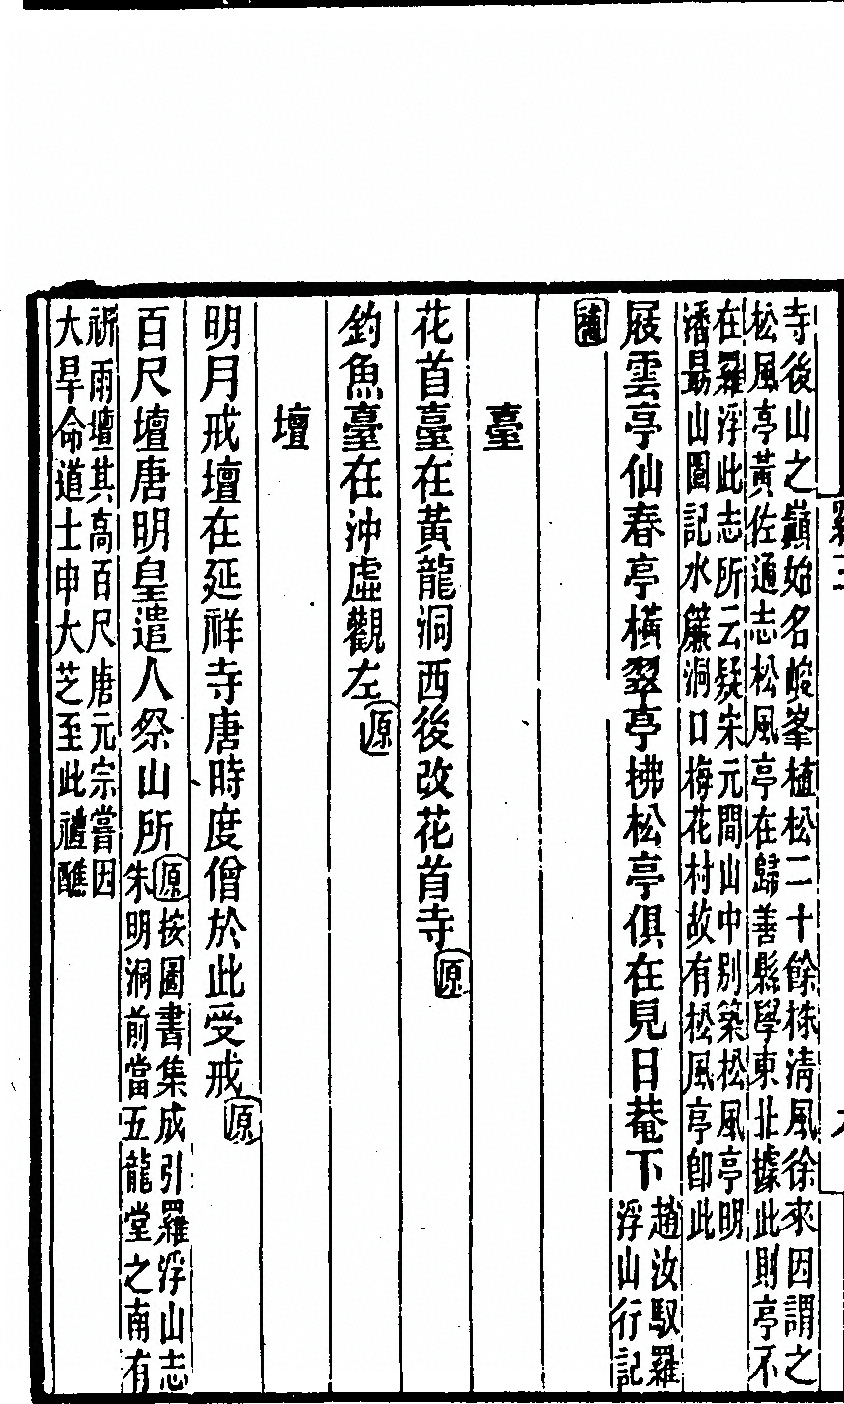 寺後山之巔始名峻峯植松二十餘株清風徐來因謂之
松風亭黃佐通志松風亭在歸善縣學東北據此則亭不
在羅浮此志所云疑宋元間山中別築松風亭明
潘最山圖記水簾洞口梅花村故有松風亭卽此
屐雲亭仙春亭橫翠亭拂松亭俱在見日菴下
趙汝馭羅
浮山行記
補
臺
花首臺在黃龍洞西後改花首寺原
釣魚臺在沖虛觀左原
壇
明月戒壇在延祥寺唐時度僧於此受戒原
百尺壇唐明皇遣人祭山所
原按圖書集成引羅浮山志
朱明洞前當五龍堂之南有
祈雨壇其高百尺唐元宗嘗因
大旱命道士申大芝至此禮醮